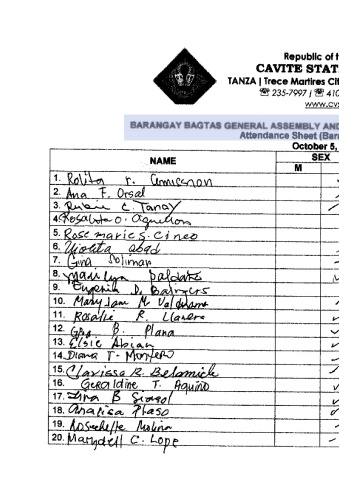 Republic of t
CAVITE STAT
TANZA | Trece Martires Cit
☏ 235-7997 | ☏ 410
www.cvs
BARANGAY BAGTAS GENERAL ASSEMBLY AND
Attendance Sheet (Bar
October 5,
NAME SEX
M
1. Rolita r.
2. Ana F. Orsal
3. C. Tanay
4. Rosalita O.
5. Rose marie S. Cineo
6. Violeta abad
7. Gina Soliman
8. Marilyn
9. Eugenia D.
10. Mary Jane M.
11. Rosalie R. Llanera
12. B. Plana
13. Elsie Abian
14. Diana T. Montero
15. Clarissa R. Belamide
16. Geraldine T. Aquino
17. B
18. Analisa
19. Rosechelle Molina
20. Marydell C. Lope